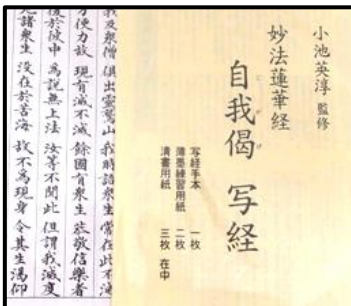 小池英淳 監修
妙法蓮華経
自我偈 写経
写経手本 一枚
薄墨練習用紙 二枚
清書用紙 三枚 在中
我及衆僧 俱出靈鷲山 我時語衆生 常在此不滅
方便力故 現有滅不滅 餘國有衆生 恭敬信樂者
復於彼中 為說無上法 汝等不聞此 但謂我滅度
見諸衆生 没在於苦海 故不為現身 令其生渇仰